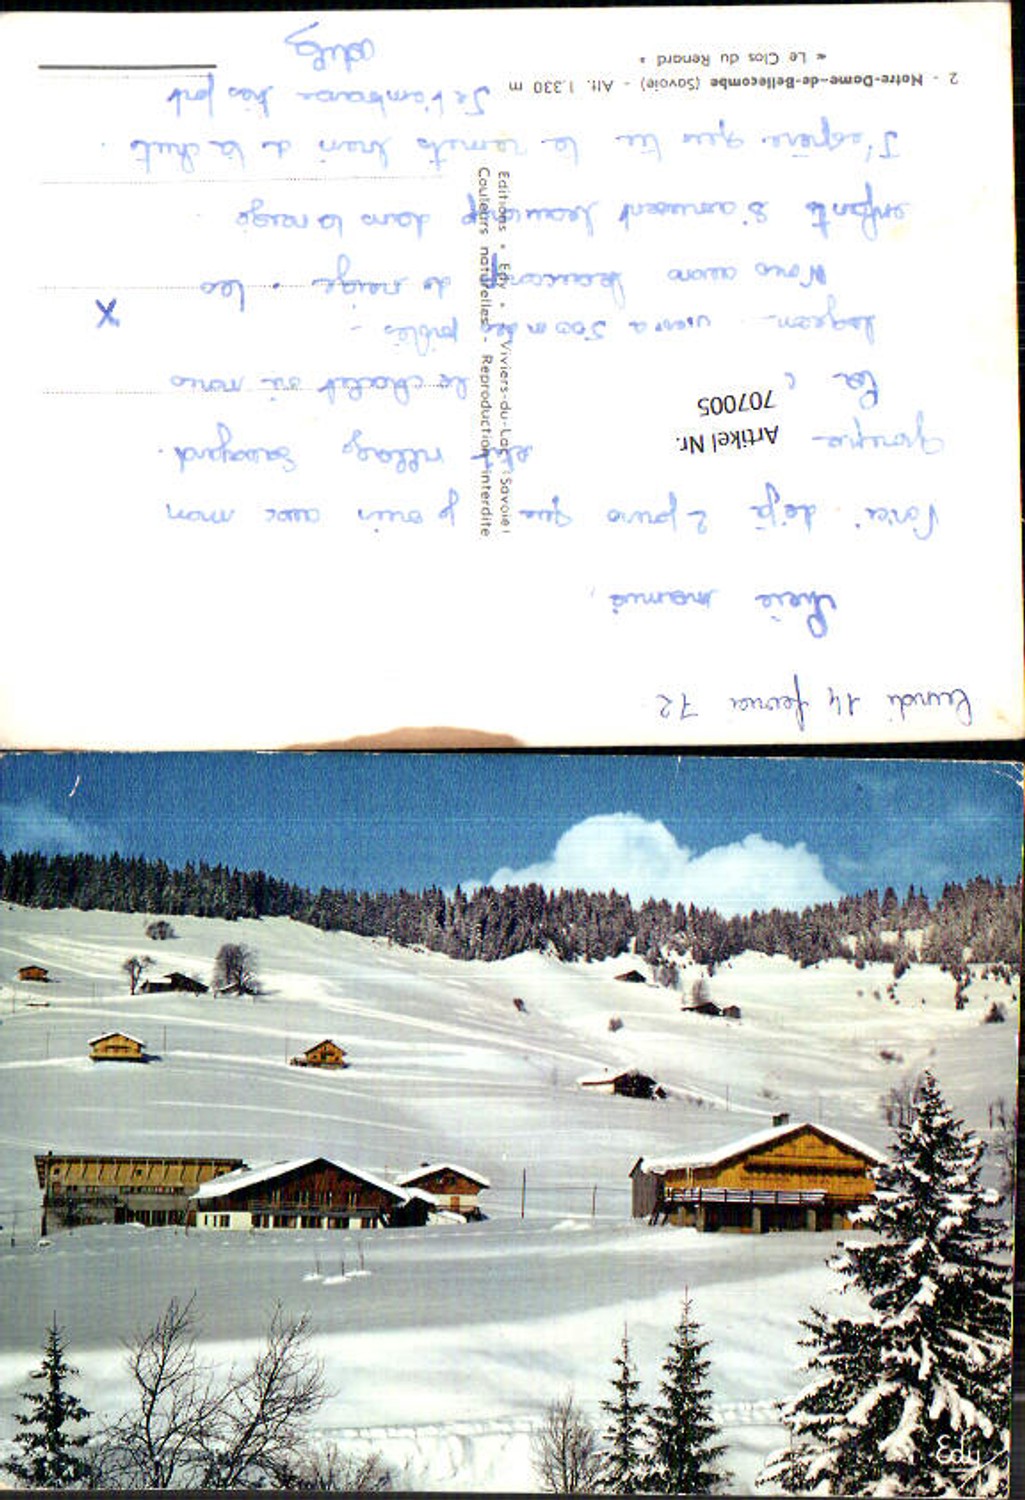 lundi 14 février 72
Chère mamie,
Voici déjà 2 jours que je suis avec mon
groupe petit village Savoyard.
Le chalet où nous
logeons vers a 500 m des pistes -
Nous avons beaucoup de neige. Les
enfants s'amusent beaucoup dans la neige.
J'espère que tu te remets bien de ta chute.
Je t'embrasse très fort
Artikel Nr.
707005
Editions « Edy » Viviers-du-Lac (Savoie)
Couleurs naturelles - Reproduction interdite
X
2 - Notre-Dame-de-Bellecombe (Savoie) - Alt. 1.330 m
« Le Clos du Renard »
Edy